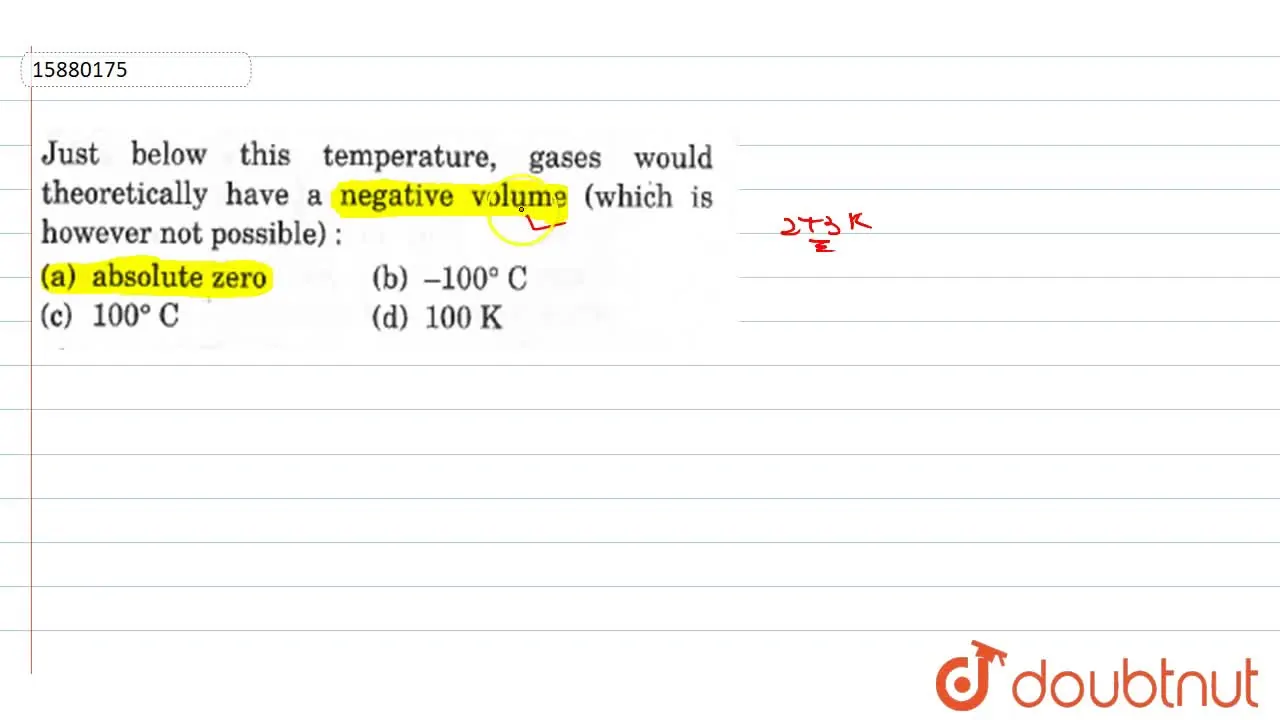 15880175
Just below this temperature, gases would
theoretically have a negative volume (which is
however not possible) :
273 K
(a) absolute zero (b) –100° C
(c) 100° C (d) 100 K
doubtnut